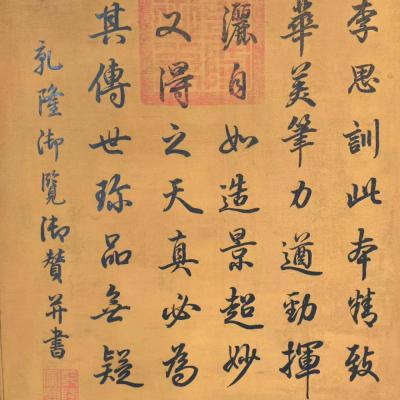 李思訓此本精致
華美筆力遒勁揮
灑自如造景超妙
又得之天真必為
其傳世珎品無疑
乾隆御覽御贊并書